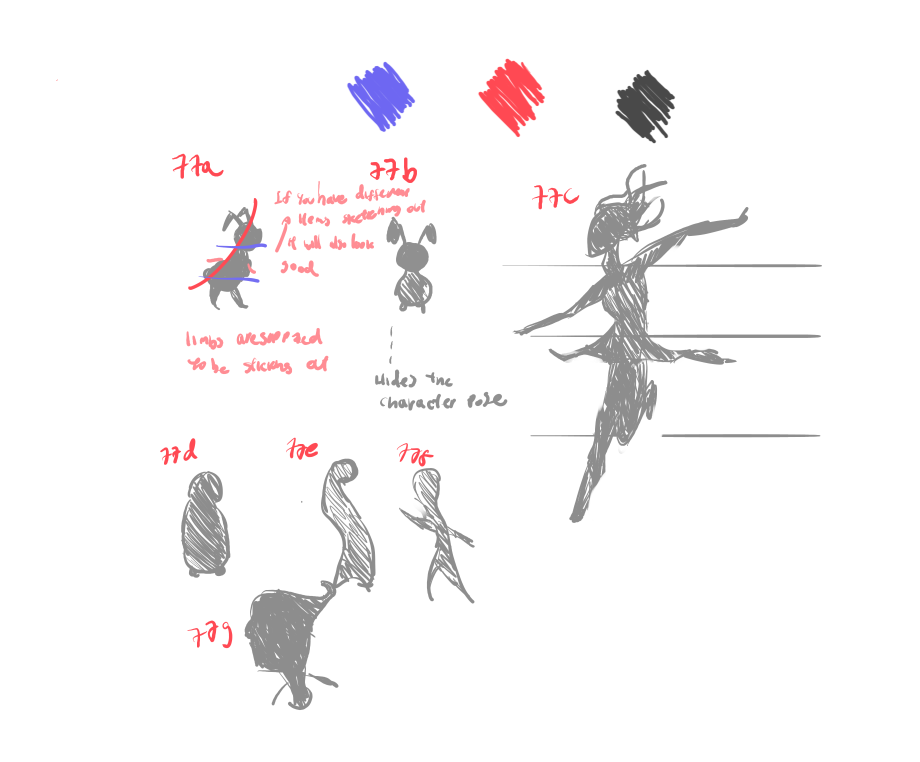 77a
If you have different
items sketching out
it will also look
good
limbs are supposed
to be sticking out
77b
Hides the
character pose
77c
77d
77e
77f
77g